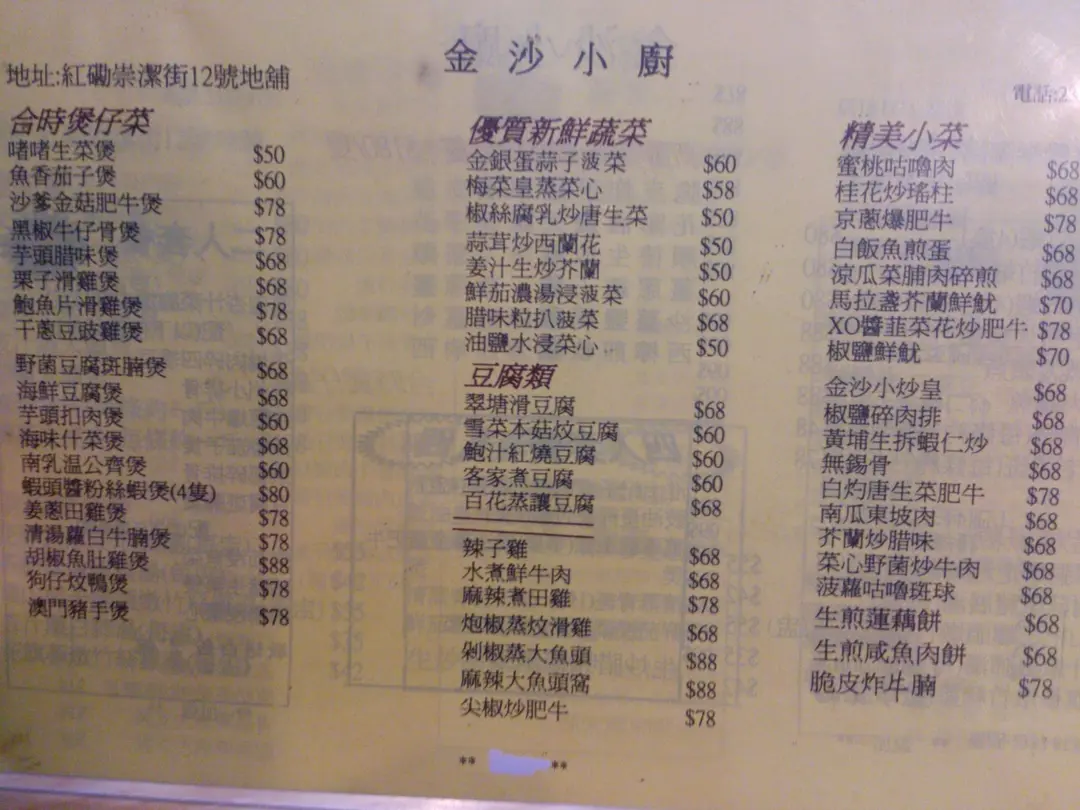 金沙小廚
地址:紅磡崇潔街12號地舖
電話:2
合時煲仔菜
啫啫生菜煲 $50
魚香茄子煲 $60
沙爹金菇肥牛煲 $78
黑椒牛仔骨煲 $78
芋頭腊味煲 $68
栗子滑雞煲 $68
鮑魚片滑雞煲 $78
干蔥豆豉雞煲 $68
野菌豆腐斑腩煲 $68
海鮮豆腐煲 $68
芋頭扣肉煲 $60
海味什菜煲 $68
南乳温公齋煲 $60
蝦頭醬粉絲蝦煲(4隻) $80
姜蔥田雞煲 $78
清湯蘿白牛腩煲 $78
胡椒魚肚雞煲 $88
狗仔炆鴨煲 $78
澳門豬手煲 $78
優質新鮮蔬菜
金銀蛋蒜子菠菜 $60
梅菜皇蒸菜心 $58
椒絲腐乳炒唐生菜 $50
蒜茸炒西蘭花 $50
姜汁生炒芥蘭 $50
鮮茄濃湯浸菠菜 $60
腊味粒扒菠菜 $68
油鹽水浸菜心 $50
豆腐類
翠塘滑豆腐 $68
雪菜本菇炆豆腐 $60
鮑汁紅燒豆腐 $60
客家煮豆腐 $60
百花蒸讓豆腐 $68
辣子雞 $68
水煮鮮牛肉 $68
麻辣煮田雞 $78
炮椒蒸炆滑雞 $68
剁椒蒸大魚頭 $88
麻辣大魚頭窩 $88
尖椒炒肥牛 $78
** **
精美小菜
蜜桃咕嚕肉 $68
桂花炒瑤柱 $68
京蔥爆肥牛 $78
白飯魚煎蛋 $68
涼瓜菜脯肉碎煎 $68
馬拉盞芥蘭鮮魷 $70
XO醬韮菜花炒肥牛 $78
椒鹽鮮魷 $70
金沙小炒皇 $68
椒鹽碎肉排 $68
黃埔生拆蝦仁炒 $68
無錫骨 $68
白灼唐生菜肥牛 $78
南瓜東坡肉 $68
芥蘭炒腊味 $68
菜心野菌炒牛肉 $68
菠蘿咕嚕斑球 $68
生煎蓮藕餅 $68
生煎咸魚肉餅 $68
脆皮炸牛腩 $78